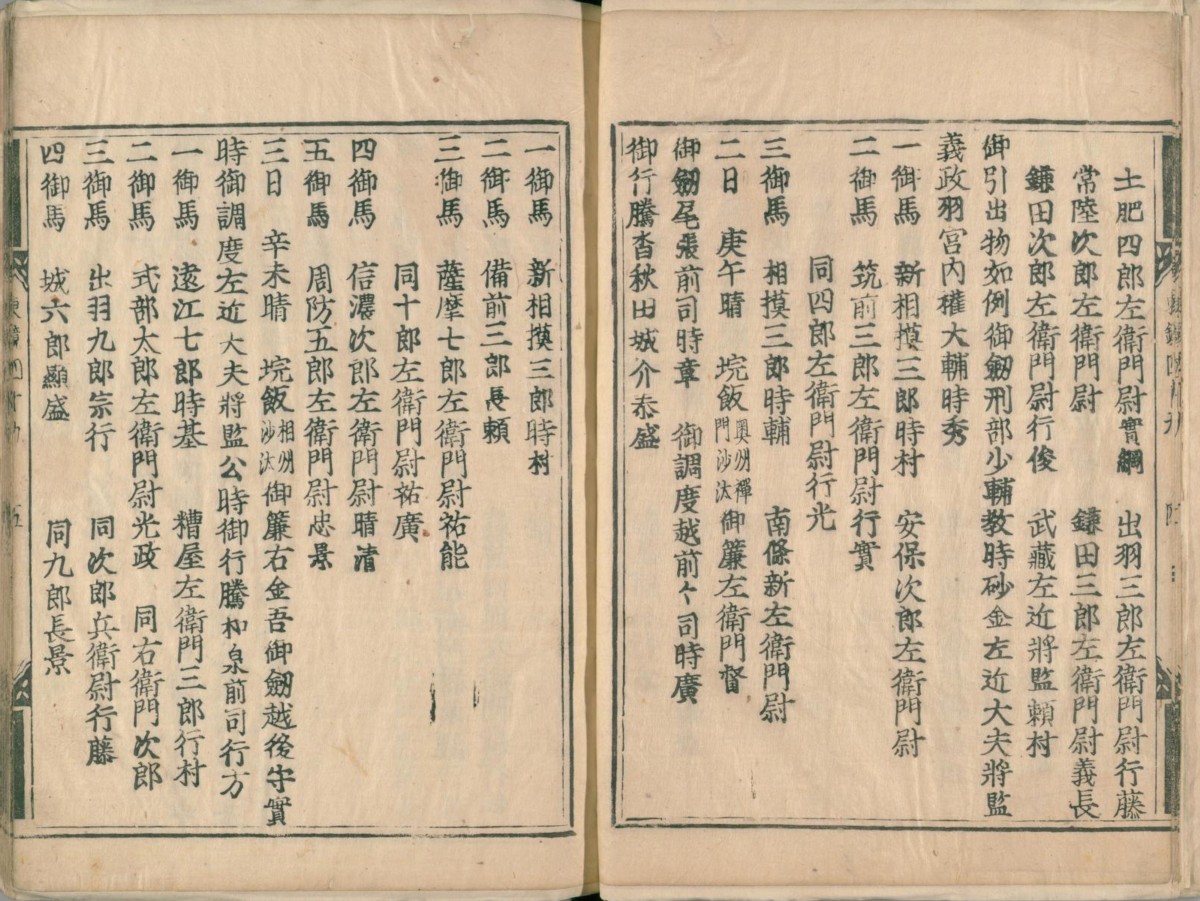 土肥四郎左衛門尉實綱　出羽三郎左衛門尉行藤
常陸次郎左衛門尉　鎌田三郎左衛門尉義長
鎌田次郎左衛門尉行俊　武藏左近將監頼村
御引出物如例御劔刑部少輔教時砂金左近大夫將監
義政羽宮内權大輔時秀
一御馬　新相摸三郎時村　安保次郎左衛門尉
二御馬　筑前三郎左衛門尉行實
同四郎左衛門尉行光
三御馬　相摸三郎時輔　南條新左衛門尉
二日　庚午晴　垸飯奥州禪門沙汰御簾左衛門督
御劔尾張前司時章　御調度越前々司時廣
御行騰沓秋田城介泰盛
一御馬　新相摸三郎時村
二御馬　備前三郎長頼
三御馬　薩摩七郎左衛門尉祐能
同十郎左衛門尉祐廣
四御馬　信濃次郎左衛門尉晴清
五御馬　周防五郎左衛門尉忠景
三日　辛未晴　垸飯相州沙汰御簾右金吾御劔越後守實
時御調度左近大夫將監公時御行騰和泉前司行方
一御馬　遠江七郎時基　糟屋左衛門三郎行村
二御馬　式部太郎左衛門尉光政　同右衛門次郎
三御馬　出羽九郎宗行　同次郎兵衛尉行藤
四御馬　城六郎顯盛　同九郎長景